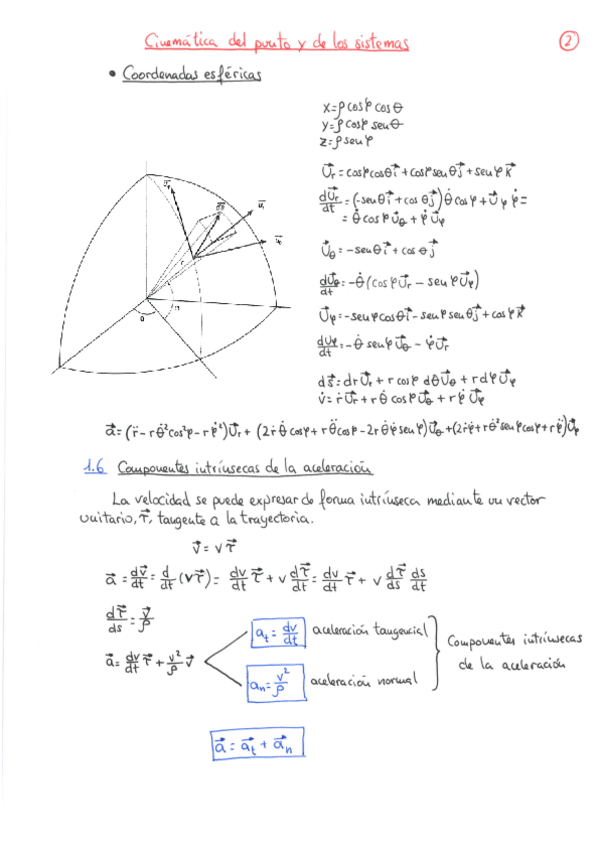 Cinemática del punto y de los sistemas
2
• Coordenadas esféricas
x=ρ cosφ cosθ
y=ρ cosφ senθ
z=ρ senφ
U⃗r = cosφcosθi⃗ + cosφ senθj⃗ + senφ k⃗
dU⃗r/dt = (-senθi⃗ + cosθj⃗)θ̇ cosφ + U⃗φ φ̇ =
= θ̇ cosφ U⃗θ + φ̇ U⃗φ
U⃗θ = -senθi⃗ + cosθj⃗
dU⃗θ/dt = -θ̇ (cosφ U⃗r - senφ U⃗φ)
U⃗φ = -senφcosθi⃗ - senφ senθj⃗ + cosφ k⃗
dU⃗φ/dt = -θ̇ senφ U⃗θ - φ̇ U⃗r
ds⃗ = dr U⃗r + r cosφ dθ U⃗θ + r dφ U⃗φ
v⃗ = ṙ U⃗r + r θ̇ cosφ U⃗θ + r φ̇ U⃗φ
a⃗ = (r̈ - rθ̇²cos²φ - rφ̇²)U⃗r + (2ṙθ̇ cosφ + rθ̈ cosφ - 2rθ̇φ̇ senφ)U⃗θ + (2ṙφ̇ + rθ̇² senφ cosφ + rφ̈)U⃗φ
1.6 Componentes intrínsecas de la aceleración
La velocidad se puede expresar de forma intrínseca mediante un vector
unitario, τ⃗, tangente a la trayectoria.
v⃗ = v τ⃗
a⃗ = dv⃗/dt = d/dt (vτ⃗) = dv/dt τ⃗ + v dτ⃗/dt = dv/dt τ⃗ + v dτ⃗/ds ds/dt
dτ⃗/ds = ν⃗/ρ
a⃗ = dv/dt τ⃗ + v²/ρ ν⃗
at = dv/dt aceleración tangencial
an = v²/ρ aceleración normal
Componentes intrínsecas
de la aceleración
a⃗ = a⃗t + a⃗n